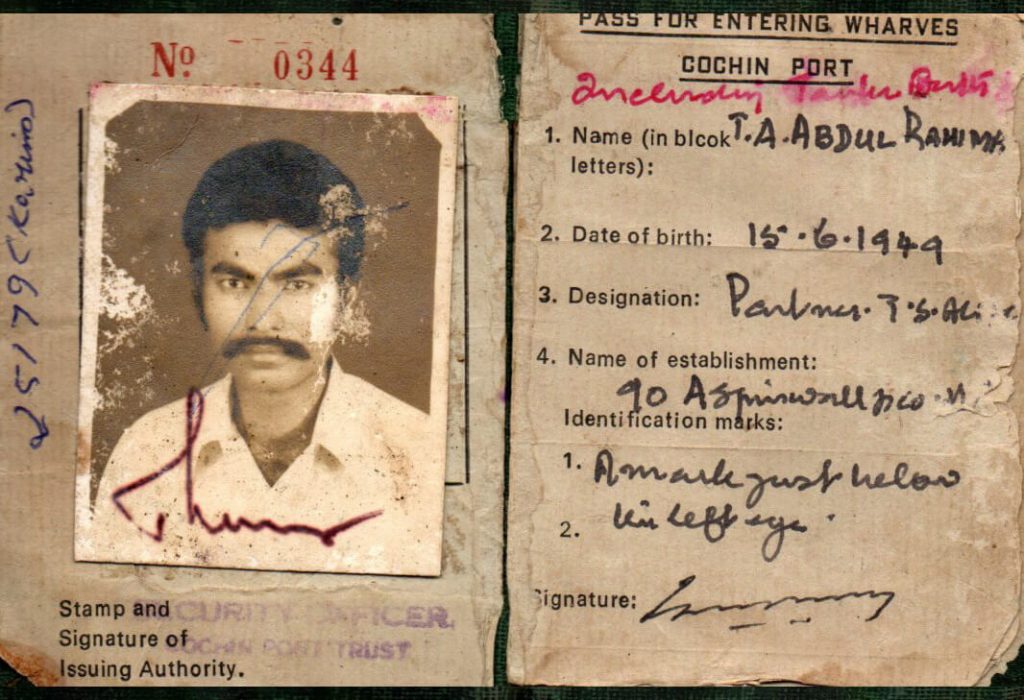 Nº 0344
251790 (Karino)
Stamp and
SECURITY OFFICER
Signature of
COCHIN PORT TRUST
Issuing Authority.
PASS FOR ENTERING WHARVES
COCHIN PORT
Including Tanker Berth
1. Name (in blcok T. A. ABDUL RAHIMA
letters):
2. Date of birth: 15.6.1949
3. Designation: Partner. T.S. Ali
4. Name of establishment:
Aspinwall
Identification marks:
1. A mark just below
2. his left eye.
Signature: